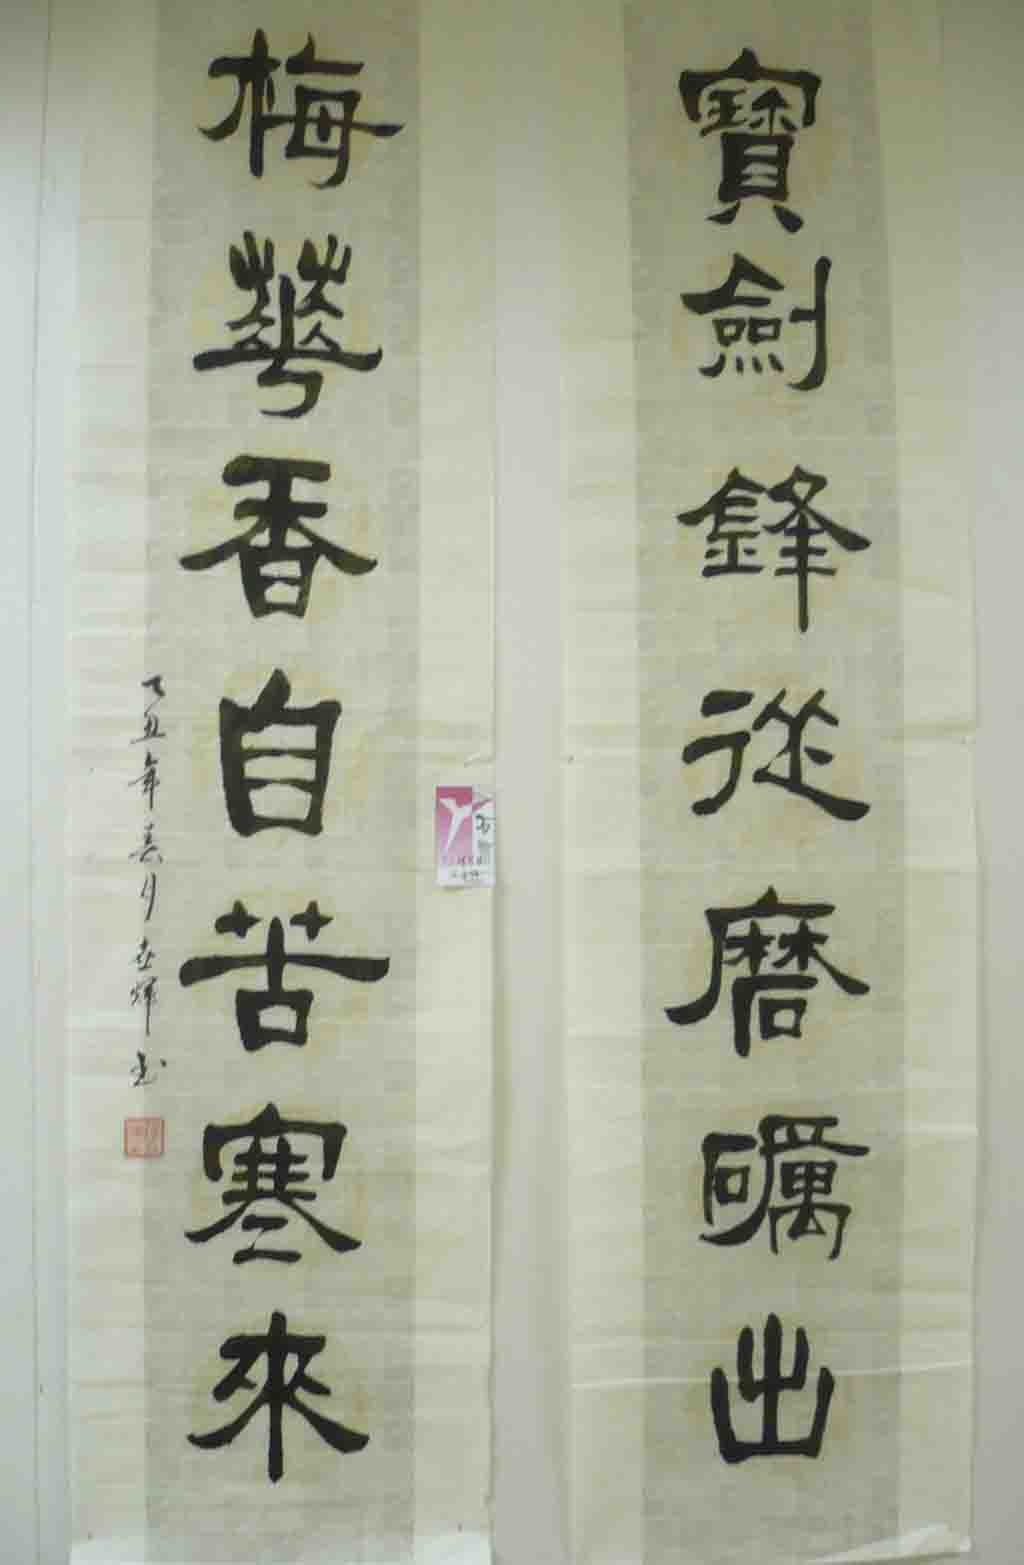 寶劍鋒從磨礪出
梅華香自苦寒來
丑年春月輝書